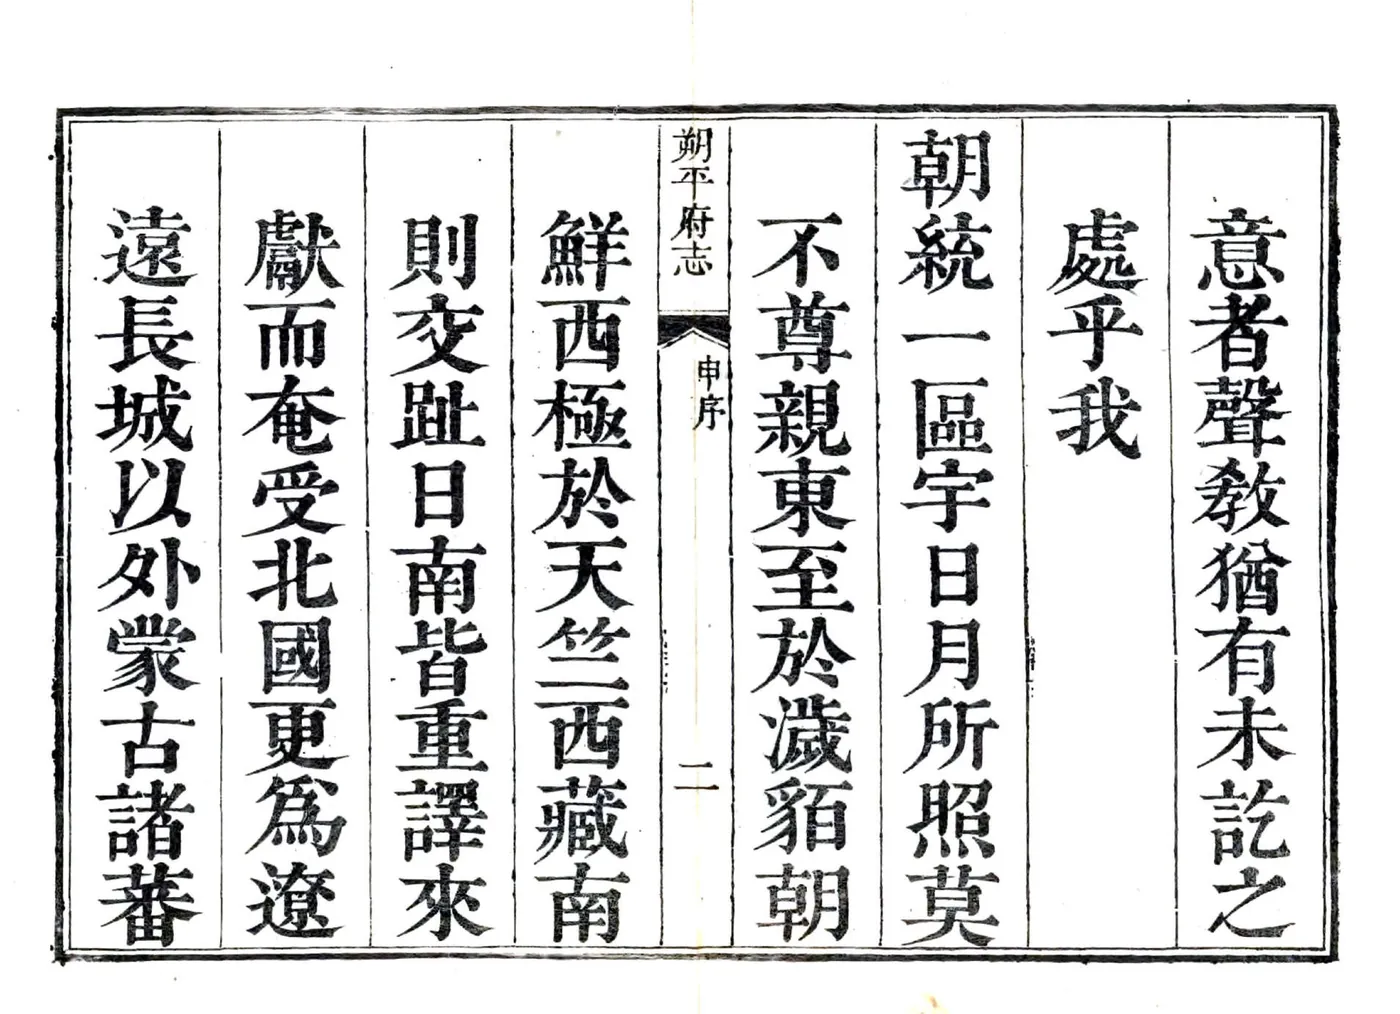 意者聲教猶有未訖之
處乎我
朝統一區宇日月所照莫
不尊親東至於濊貊朝
朔平府志
申序
二
鮮西極於天竺西藏南
則交趾日南皆重譯來
獻而奄受北國更為遼
遠長城以外蒙古諸蕃